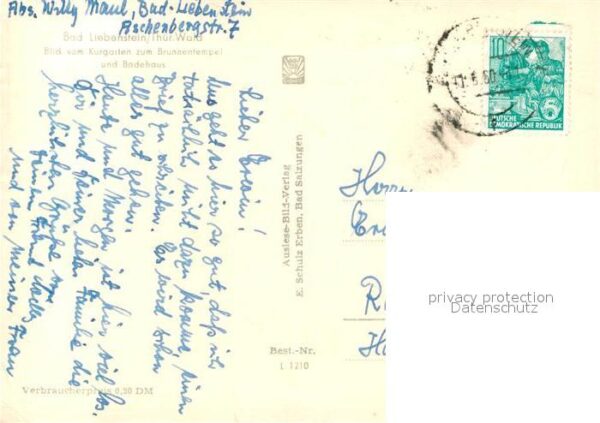 Abs. Willy Maul, Bad-Liebenstein
Aschenbergstr. 7
Bad Liebenstein/Thür. Wald
Blick vom Kurgarten zum Brunnentempel
und Badehaus
Lieber Erwin!
Uns geht es hier so gut, daß ich
tatsächlich nicht dazu komme, einen
Brief zu schreiben. Es wird schon
alles gut gehen.
Heute und Morgen ist hier viel los.
Dir und Deiner lieben Familie die
herzlichsten Grüße von
Deinem Freund
und von meiner Frau
Verbraucherpreis 0,20 DM
Auslese-Bild-Verlag
E. Schulz Erben, Bad Salzungen
Best.-Nr.
L 1210
60
10
DEUTSCHE
DEMOKRATISCHE REPUBLIK
Herrn
privacy protection
Datenschutz